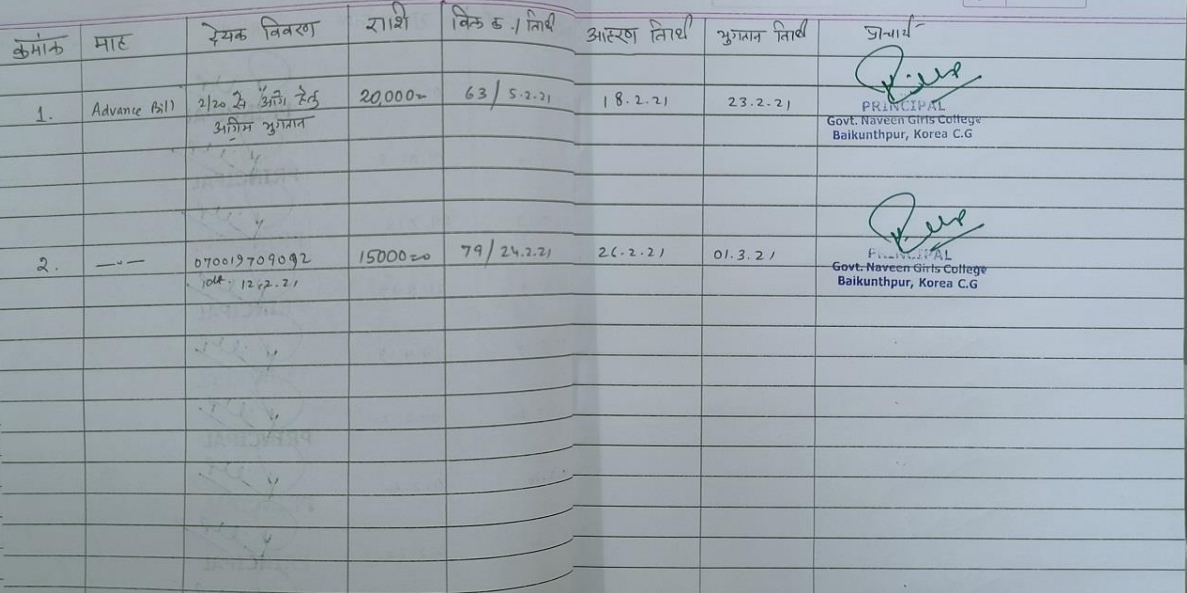 क्रमांक माह देयक विवरण राशि बिल क्र. / तिथि आहरण तिथी भुगतान तिथी प्राचार्य
1. Advance Bill 2/20 से आगे हेतु 20,000= 63 / 5.2.21 18.2.21 23.2.21
अग्रिम भुगतान
PRINCIPAL
Govt. Naveen Girls College
Baikunthpur, Korea C.G
2. —"— 070019709092 15000=00 79 / 24.2.21 26.2.21 01.3.21
12.2.21
PRINCIPAL
Govt. Naveen Girls College
Baikunthpur, Korea C.G